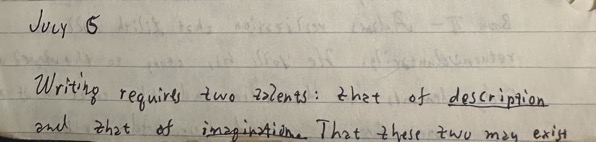 July 6
Writing requires two talents: that of description
and that of imagination. That these two may exist